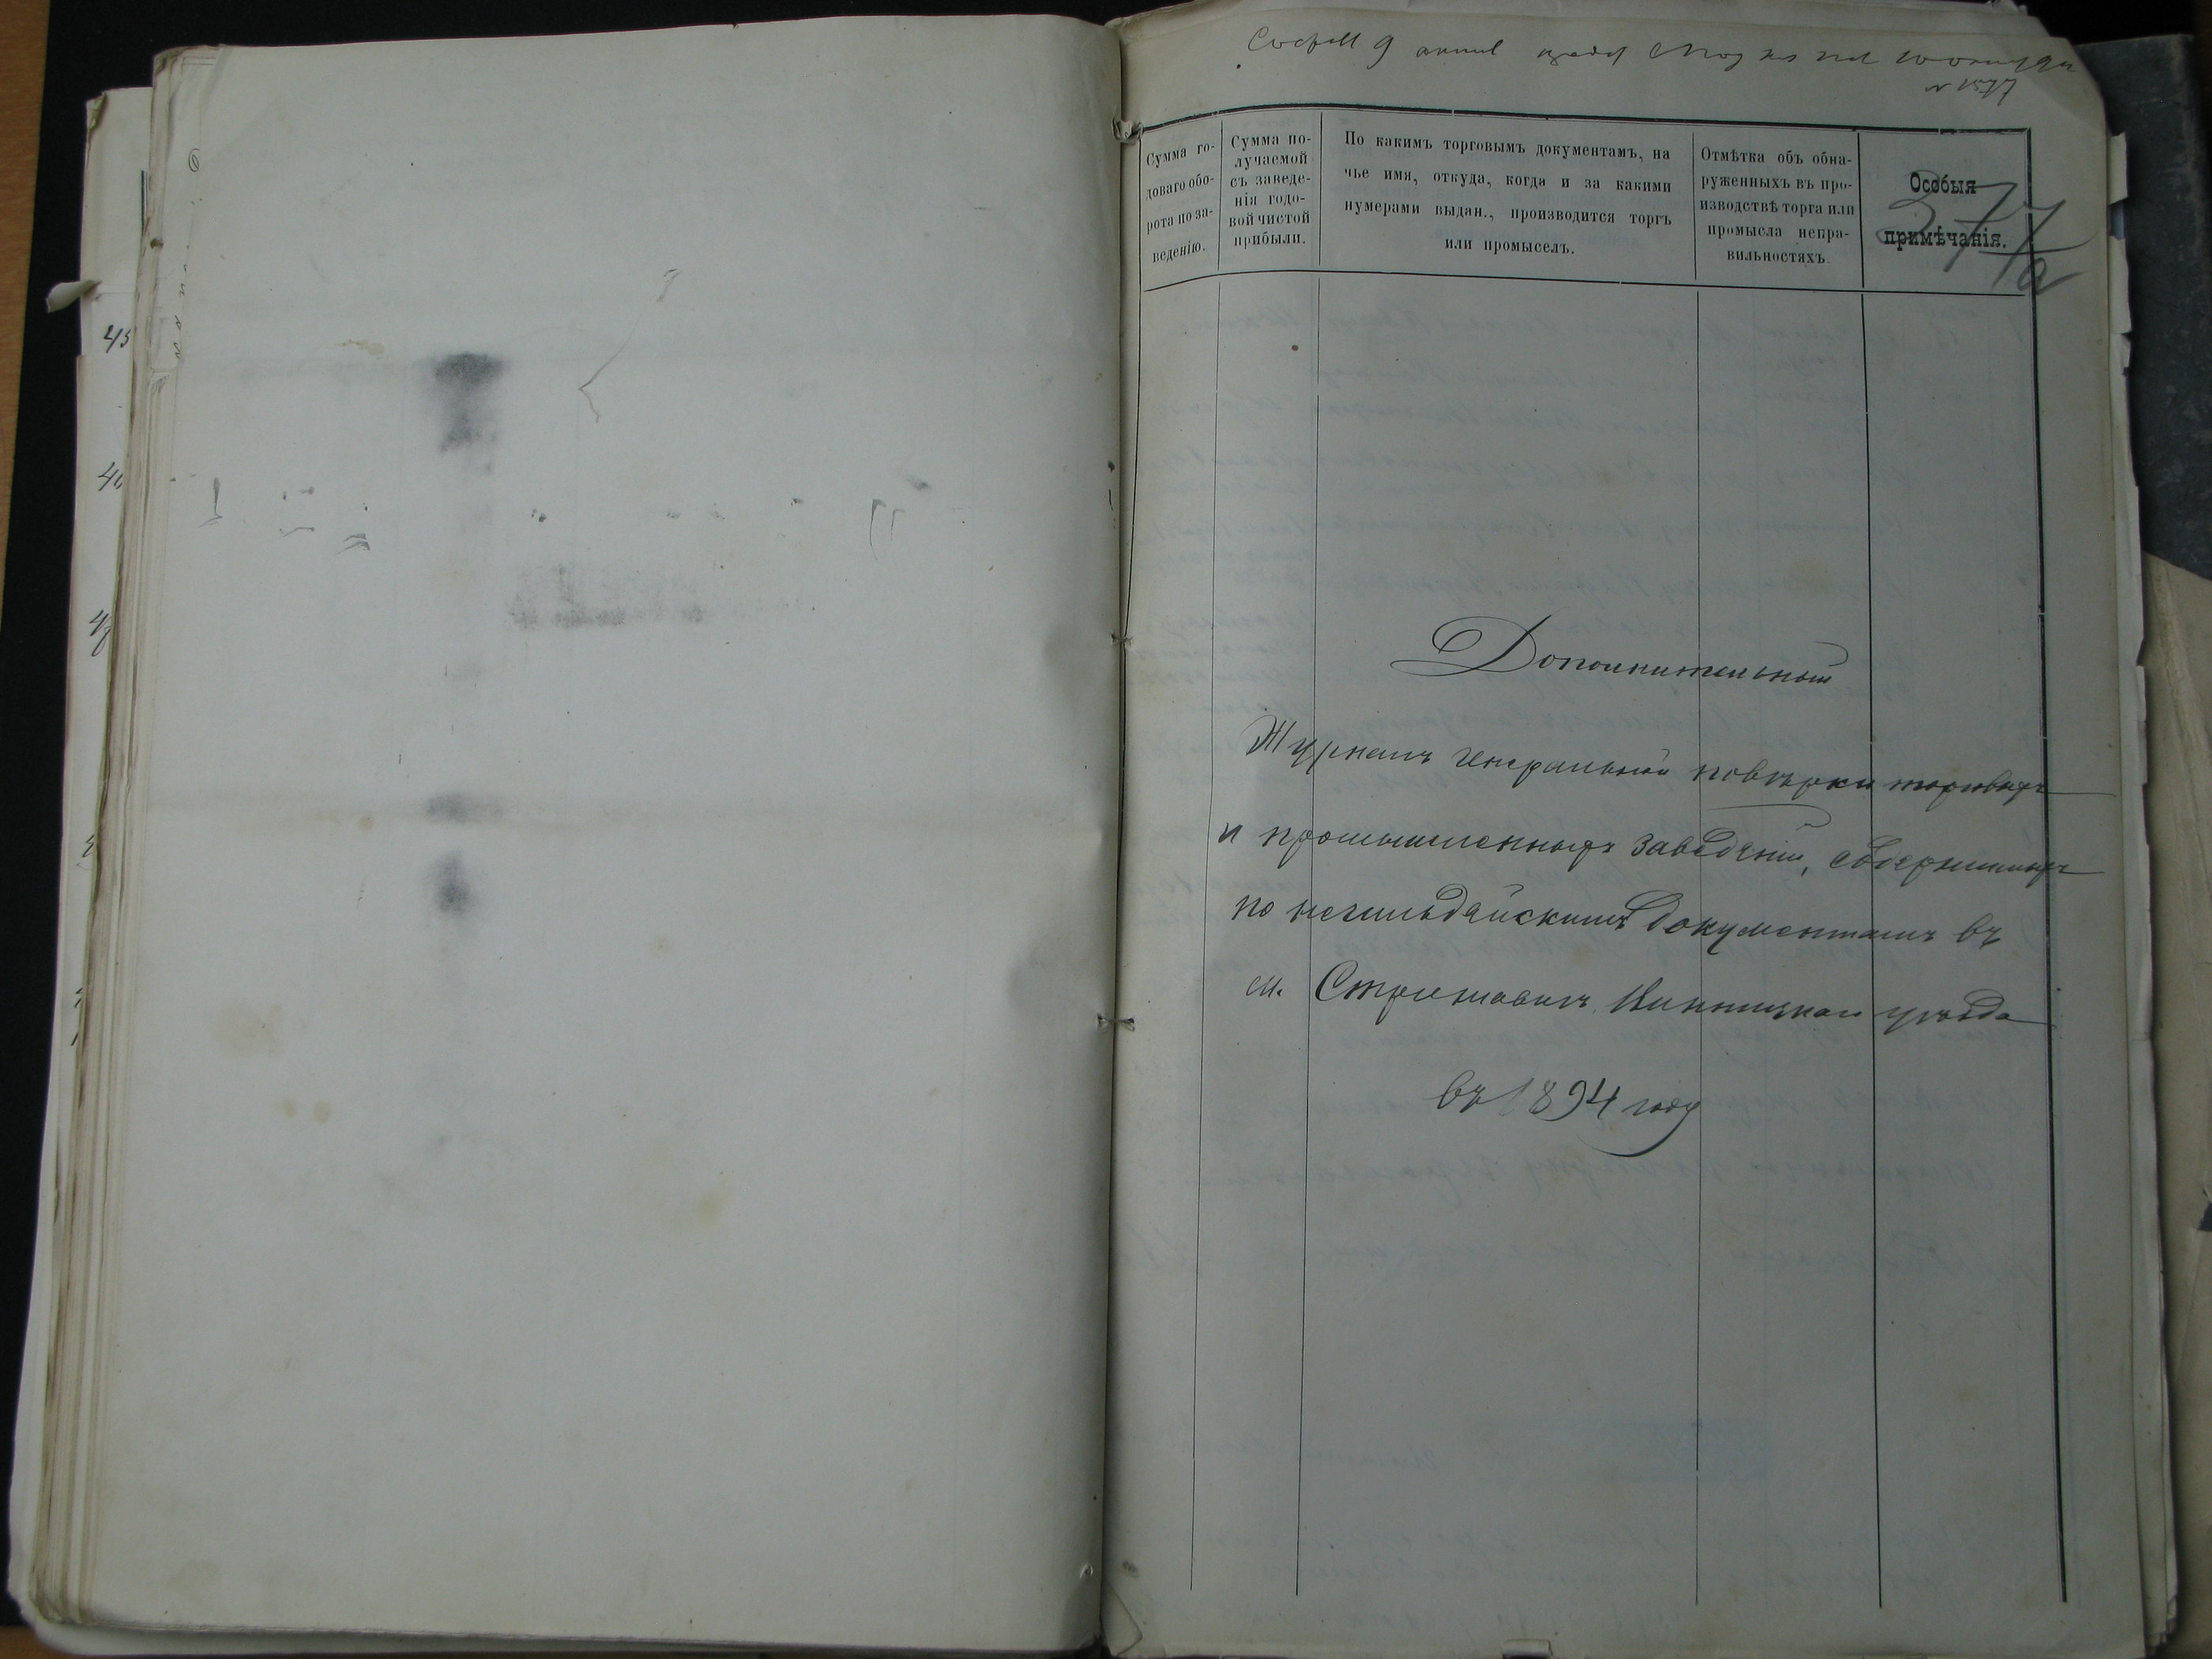 № 1577
377/а
Сумма го-
доваго обо-
рота по за-
веденію.
Сумма по-
лучаемой
съ заведе-
нія годо-
вой чистой
прибыли.
По какимъ торговымъ документамъ, на
чье имя, откуда, когда и за какими
нумерами выдан., производится торгъ
или промыселъ.
Отмѣтка объ обна-
руженныхъ въ про-
изводствѣ торга или
промысла непра-
вильностяхъ.
Особыя
примѣчанія.
Дополнительный
Журналъ Генеральной повѣрки торговыхъ
и промышленныхъ заведеній, содержимыхъ
по негильдейскимъ документамъ въ
м. Стрижавкѣ Винницкаго уѣзда
въ 1894 году
45